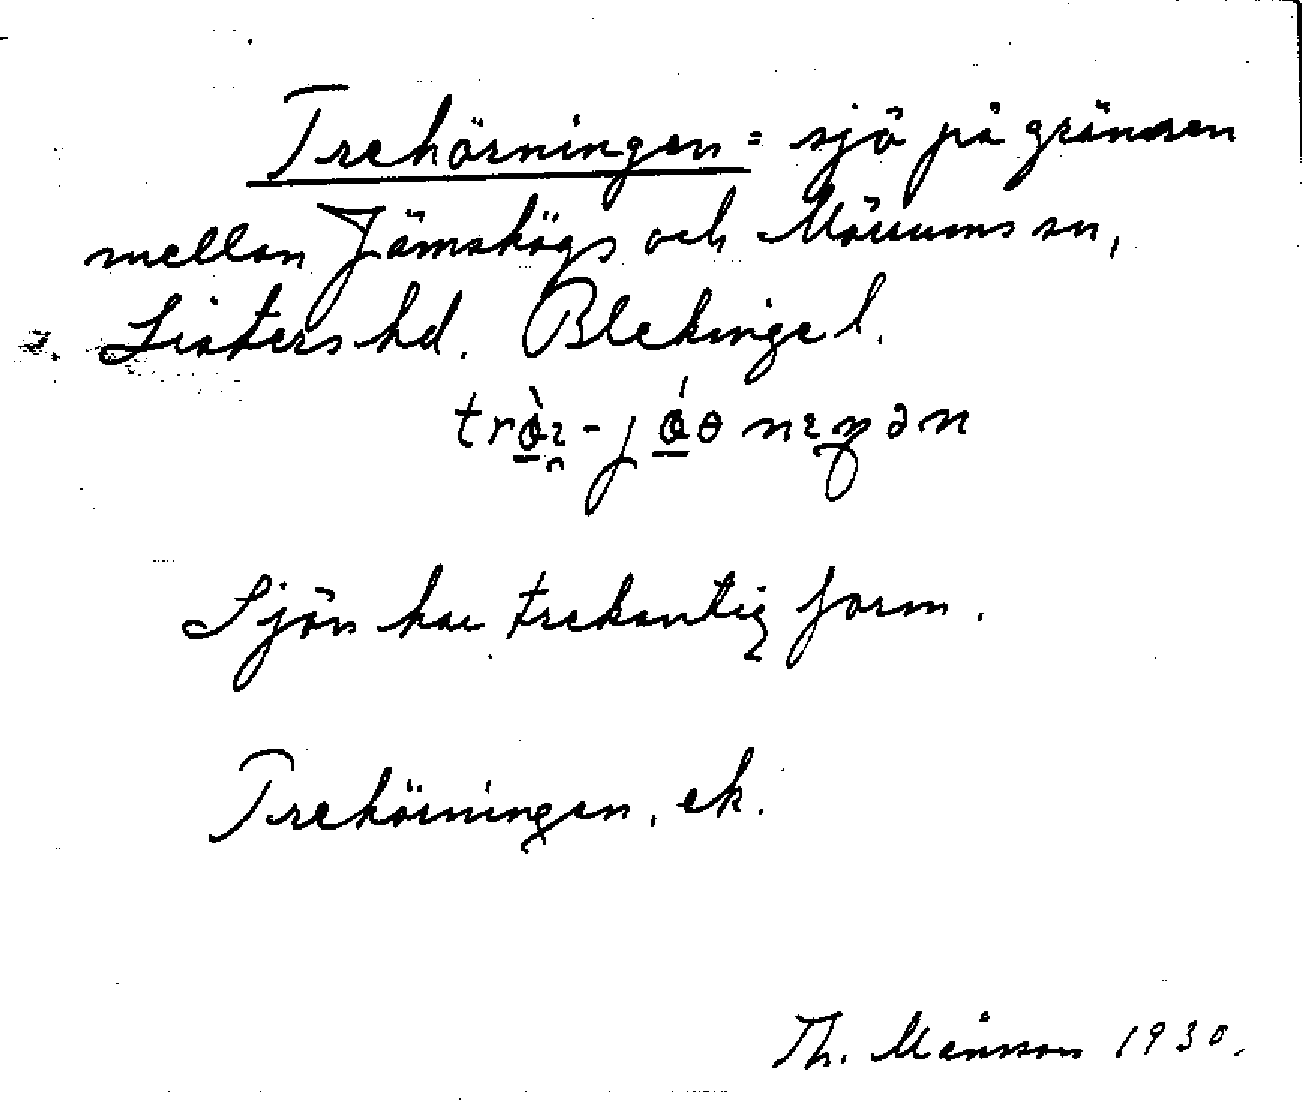 Trehörningen = sjö på gränsen
mellan Jämshögs och Mörrums sn,
Listers hd. Blekinge l.
Sjön har trekantig form.
Trehörningen, ek.
Th. Månsson 1930.